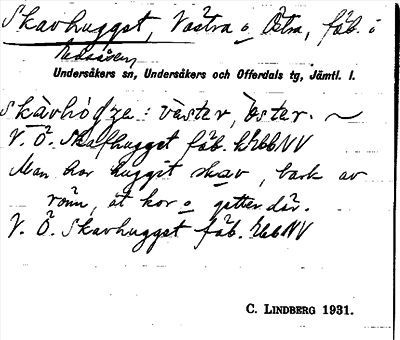 Skavhugget, Västra o Östra, fäb. i
Undersåkers sn, Undersåkers och Offerdals tg, Jämtl. l.
väster, öster. ~
V. Ö. Skalhugget fäb. NV
Man har huggit skav, bark av
rönn, åt kor o getter där.
V. Ö. Skavhugget fäb. NV
C. LINDBERG 1931.